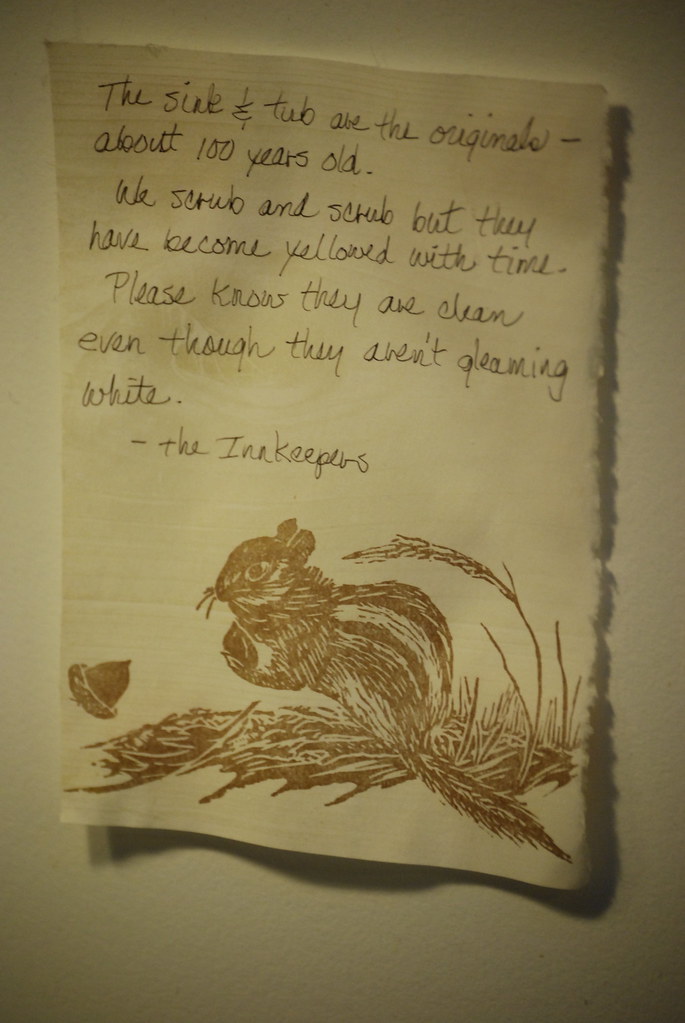 The sink & tub are the originals –
about 100 years old.
We scrub and scrub but they
have become yellowed with time.
Please know they are clean
even though they aren't gleaming
white.
– the Innkeepers